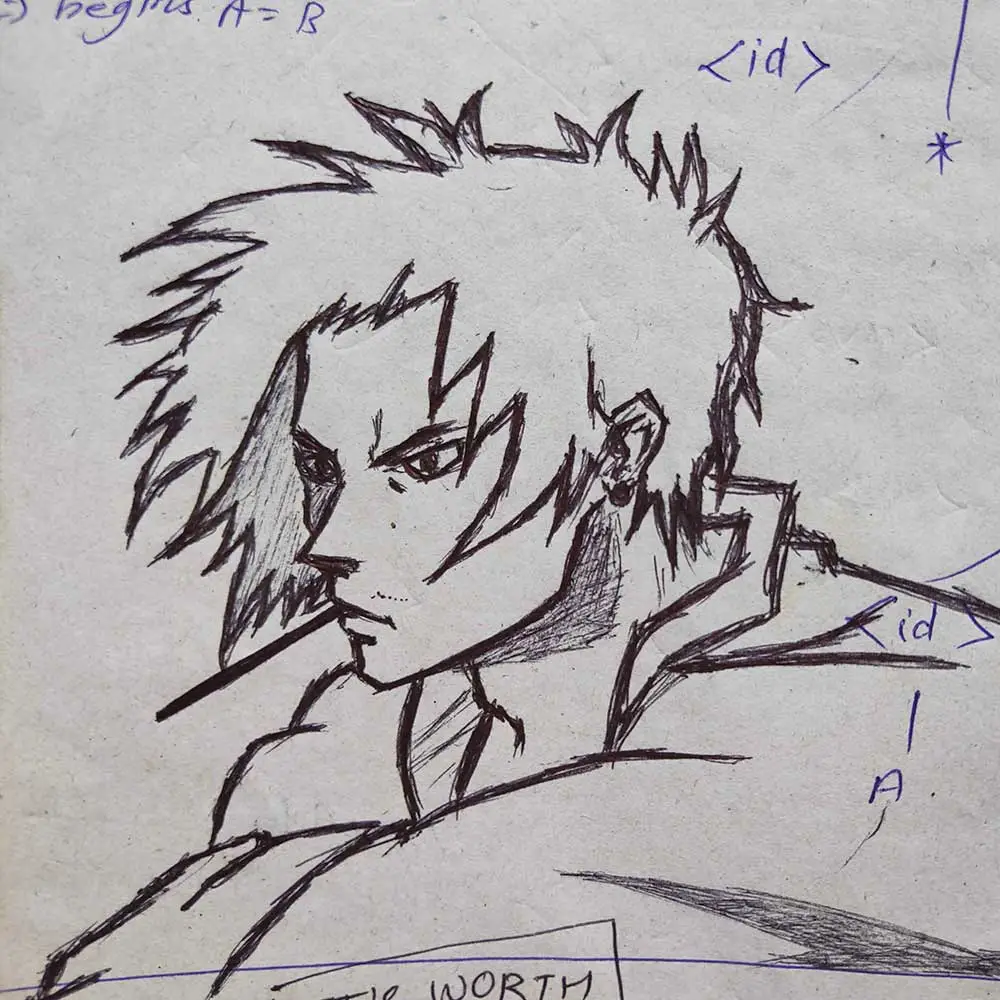 begins A = B
<id>
*
<id>
A
WORTH